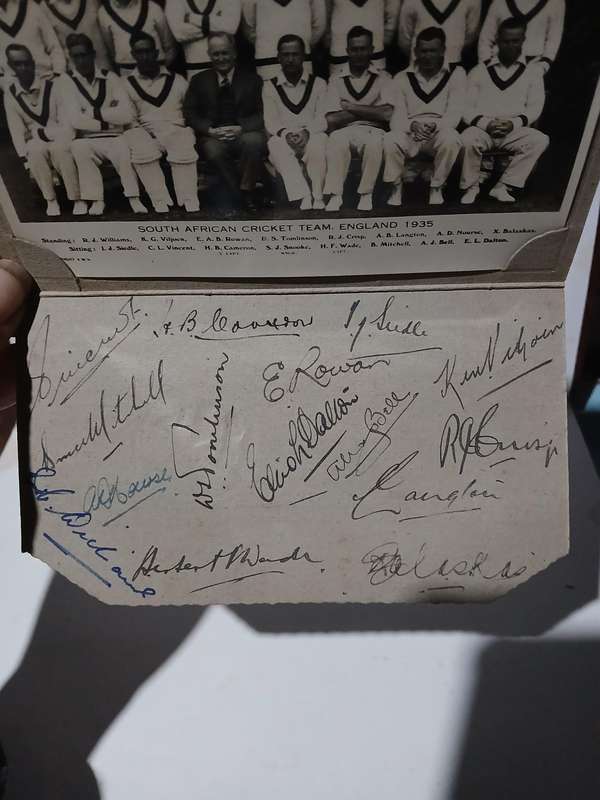 SOUTH AFRICAN CRICKET TEAM. ENGLAND 1935
Standing: R. J. Williams, K. G. Viljoen, E. A. B. Rowan, D. S. Tomlinson, R. J. Crisp, A. B. Langton, A. D. Nourse, X. Balaskas.
Sitting: I. J. Siedle, C. L. Vincent, H. B. Cameron, S. J. Snooke, H. F. Wade, B. Mitchell, A. J. Bell, E. L. Dalton.
Vincent
H B Cameron
I J Siedle
E Rowan
Ken Viljoen
Bruce Mitchell
D S Tomlinson
Eric L Dalton
Alex J Bell
R J Crisp
A D Nourse
Langton
R J Williams
Herbert F Wade
X Balaskas